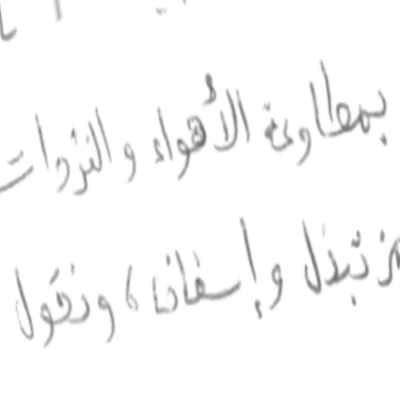 بمطاوعة الأهواء والنزوات
تبذل وإسفاف، ونقول